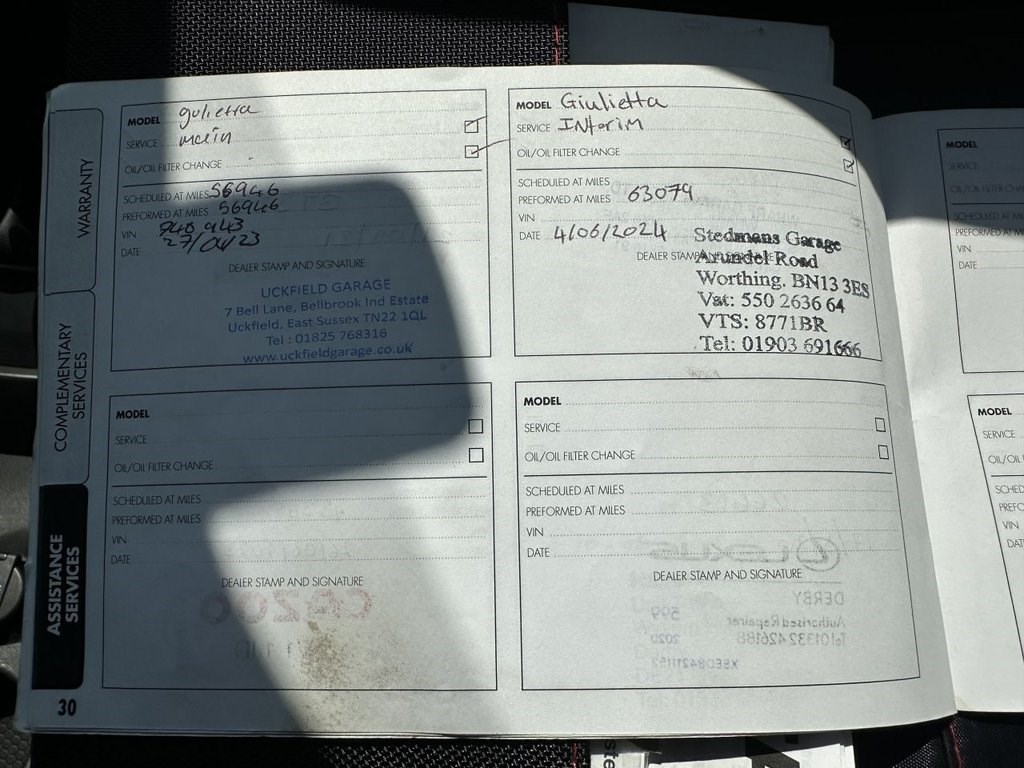 WARRANTY
COMPLEMENTARY
SERVICES
ASSISTANCE
SERVICES
30
MODEL gulietta
SERVICE main
OIL/OIL FILTER CHANGE
SCHEDULED AT MILES 56946
PREFORMED AT MILES 56946
VIN
DATE 27/04/23
DEALER STAMP AND SIGNATURE
UCKFIELD GARAGE
7 Bell Lane, Bellbrook Ind Estate
Uckfield, East Sussex TN22 1QL
Tel : 01825 768316
www.uckfieldgarage.co.uk
MODEL Giulietta
SERVICE INterim
OIL/OIL FILTER CHANGE
SCHEDULED AT MILES
PREFORMED AT MILES 63079
VIN
DATE 4/06/2024
DEALER STAMP
Stedmans Garage
Arundel Road
Worthing. BN13 3ES
Vat: 550 2636 64
VTS: 8771BR
Tel: 01903 691666
MODEL
SERVICE
OIL/OIL FILTER CHANGE
SCHEDULED AT MILES
PREFORMED AT MILES
VIN
DATE
DEALER STAMP AND SIGNATURE
MODEL
SERVICE
OIL/OIL FILTER CHANGE
SCHEDULED AT MILES
PREFORMED AT MILES
VIN
DATE
DEALER STAMP AND SIGNATURE
MODEL
SERVICE
OIL/OIL FILTER CHA
SCHEDULED AT MILES
PREFORMED AT MILES
VIN
DATE
MODEL
SERVICE
OIL/OIL
SCHED
PREFO
VIN
DAT